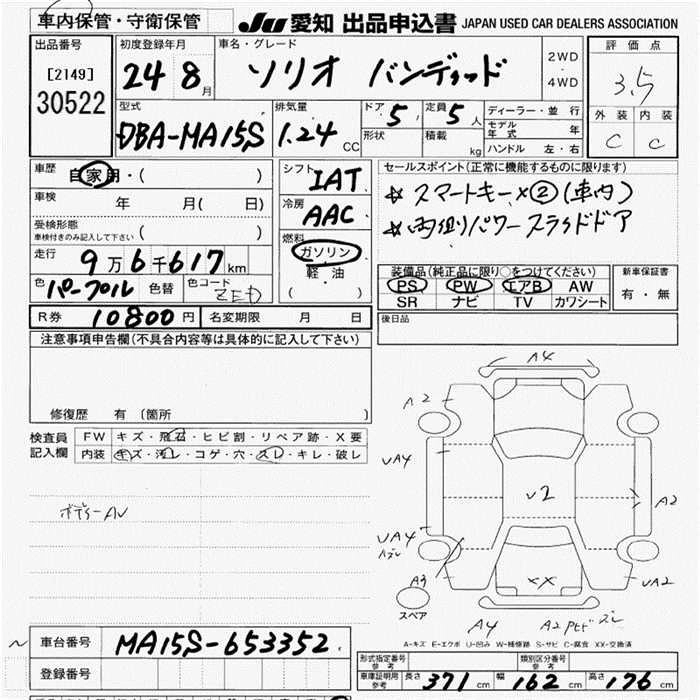 車内保管・守衛保管
JU 愛知 出品申込書 JAPAN USED CAR DEALERS ASSOCIATION
出品番号
[2149]
30522
初度登録年月
24 8 月
車名・グレード
ソリオ バンディット
2WD
・
4WD
評価点
3.5
外装 内装
C C
型式
DBA-MA15S
排気量
1.24 CC
ドア 5
定員 5 人
形状
積載 kg
ディーラー・並行
モデル年式 年
ハンドル 左・右
車歴
自家用・( )
車検
年 月( 日)
受検形態
車検付きのみ記入して下さい
( )
走行
9万6千617km
色 パープル 色替 色コード ZED
シフト
IAT
冷房
AAC
燃料
ガソリン
軽・油
( )
セールスポイント(正常に機能するものに限ります)
☆ スマートキー×②(車内)
☆ 両側パワースライドドア
装備品(純正品に限り○をつけてください)
PS PW エアB AW
SR ナビ TV カワシート
新車保証書
有・無
後日品
R券 10800 円 名変期限 月 日
注意事項申告欄(不具合内容等は具体的に記入して下さい)
修復歴 有(箇所 )
検査員
記入欄
FW キズ・飛石・ヒビ割・リペア跡・X要
内装 キズ・汚レ・コゲ・穴・スレ・キレ・破レ
ボデーAU
A4
A2
UA4
U2
A2
UA4
A3
XX
UA2
スペア
A4
A2
A-キズ E-エクボ U-凹み W-補修跡 S-サビ C-腐食 XX-交換済
車台番号 MA15S-653352
登録番号
形式指定番号
参考
類別区分番号
参考
車庫証明用
参考
長さ 371 cm 幅 162 cm 高さ 176 cm